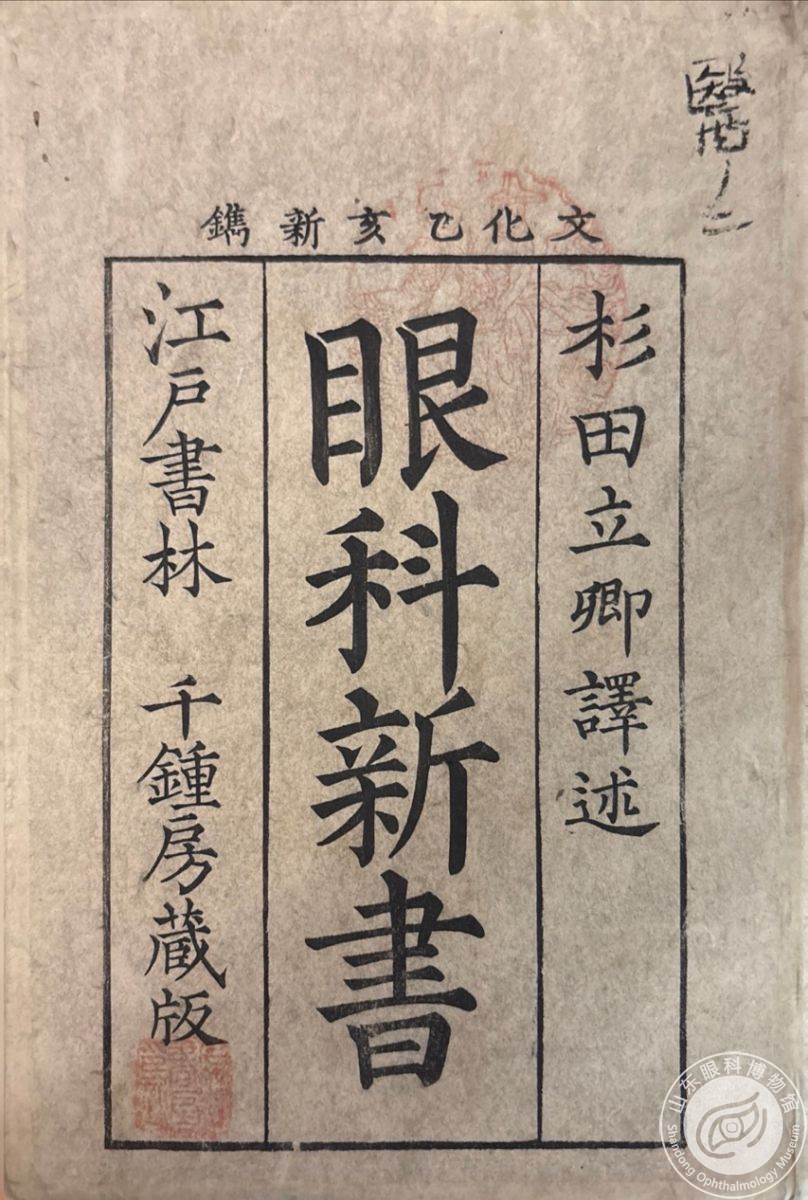 文化乙亥新鐫
杉田立卿譯述
眼科新書
江戸書林 千鍾房蔵版
山东眼科博物馆
Shandong Ophthalmology Museum